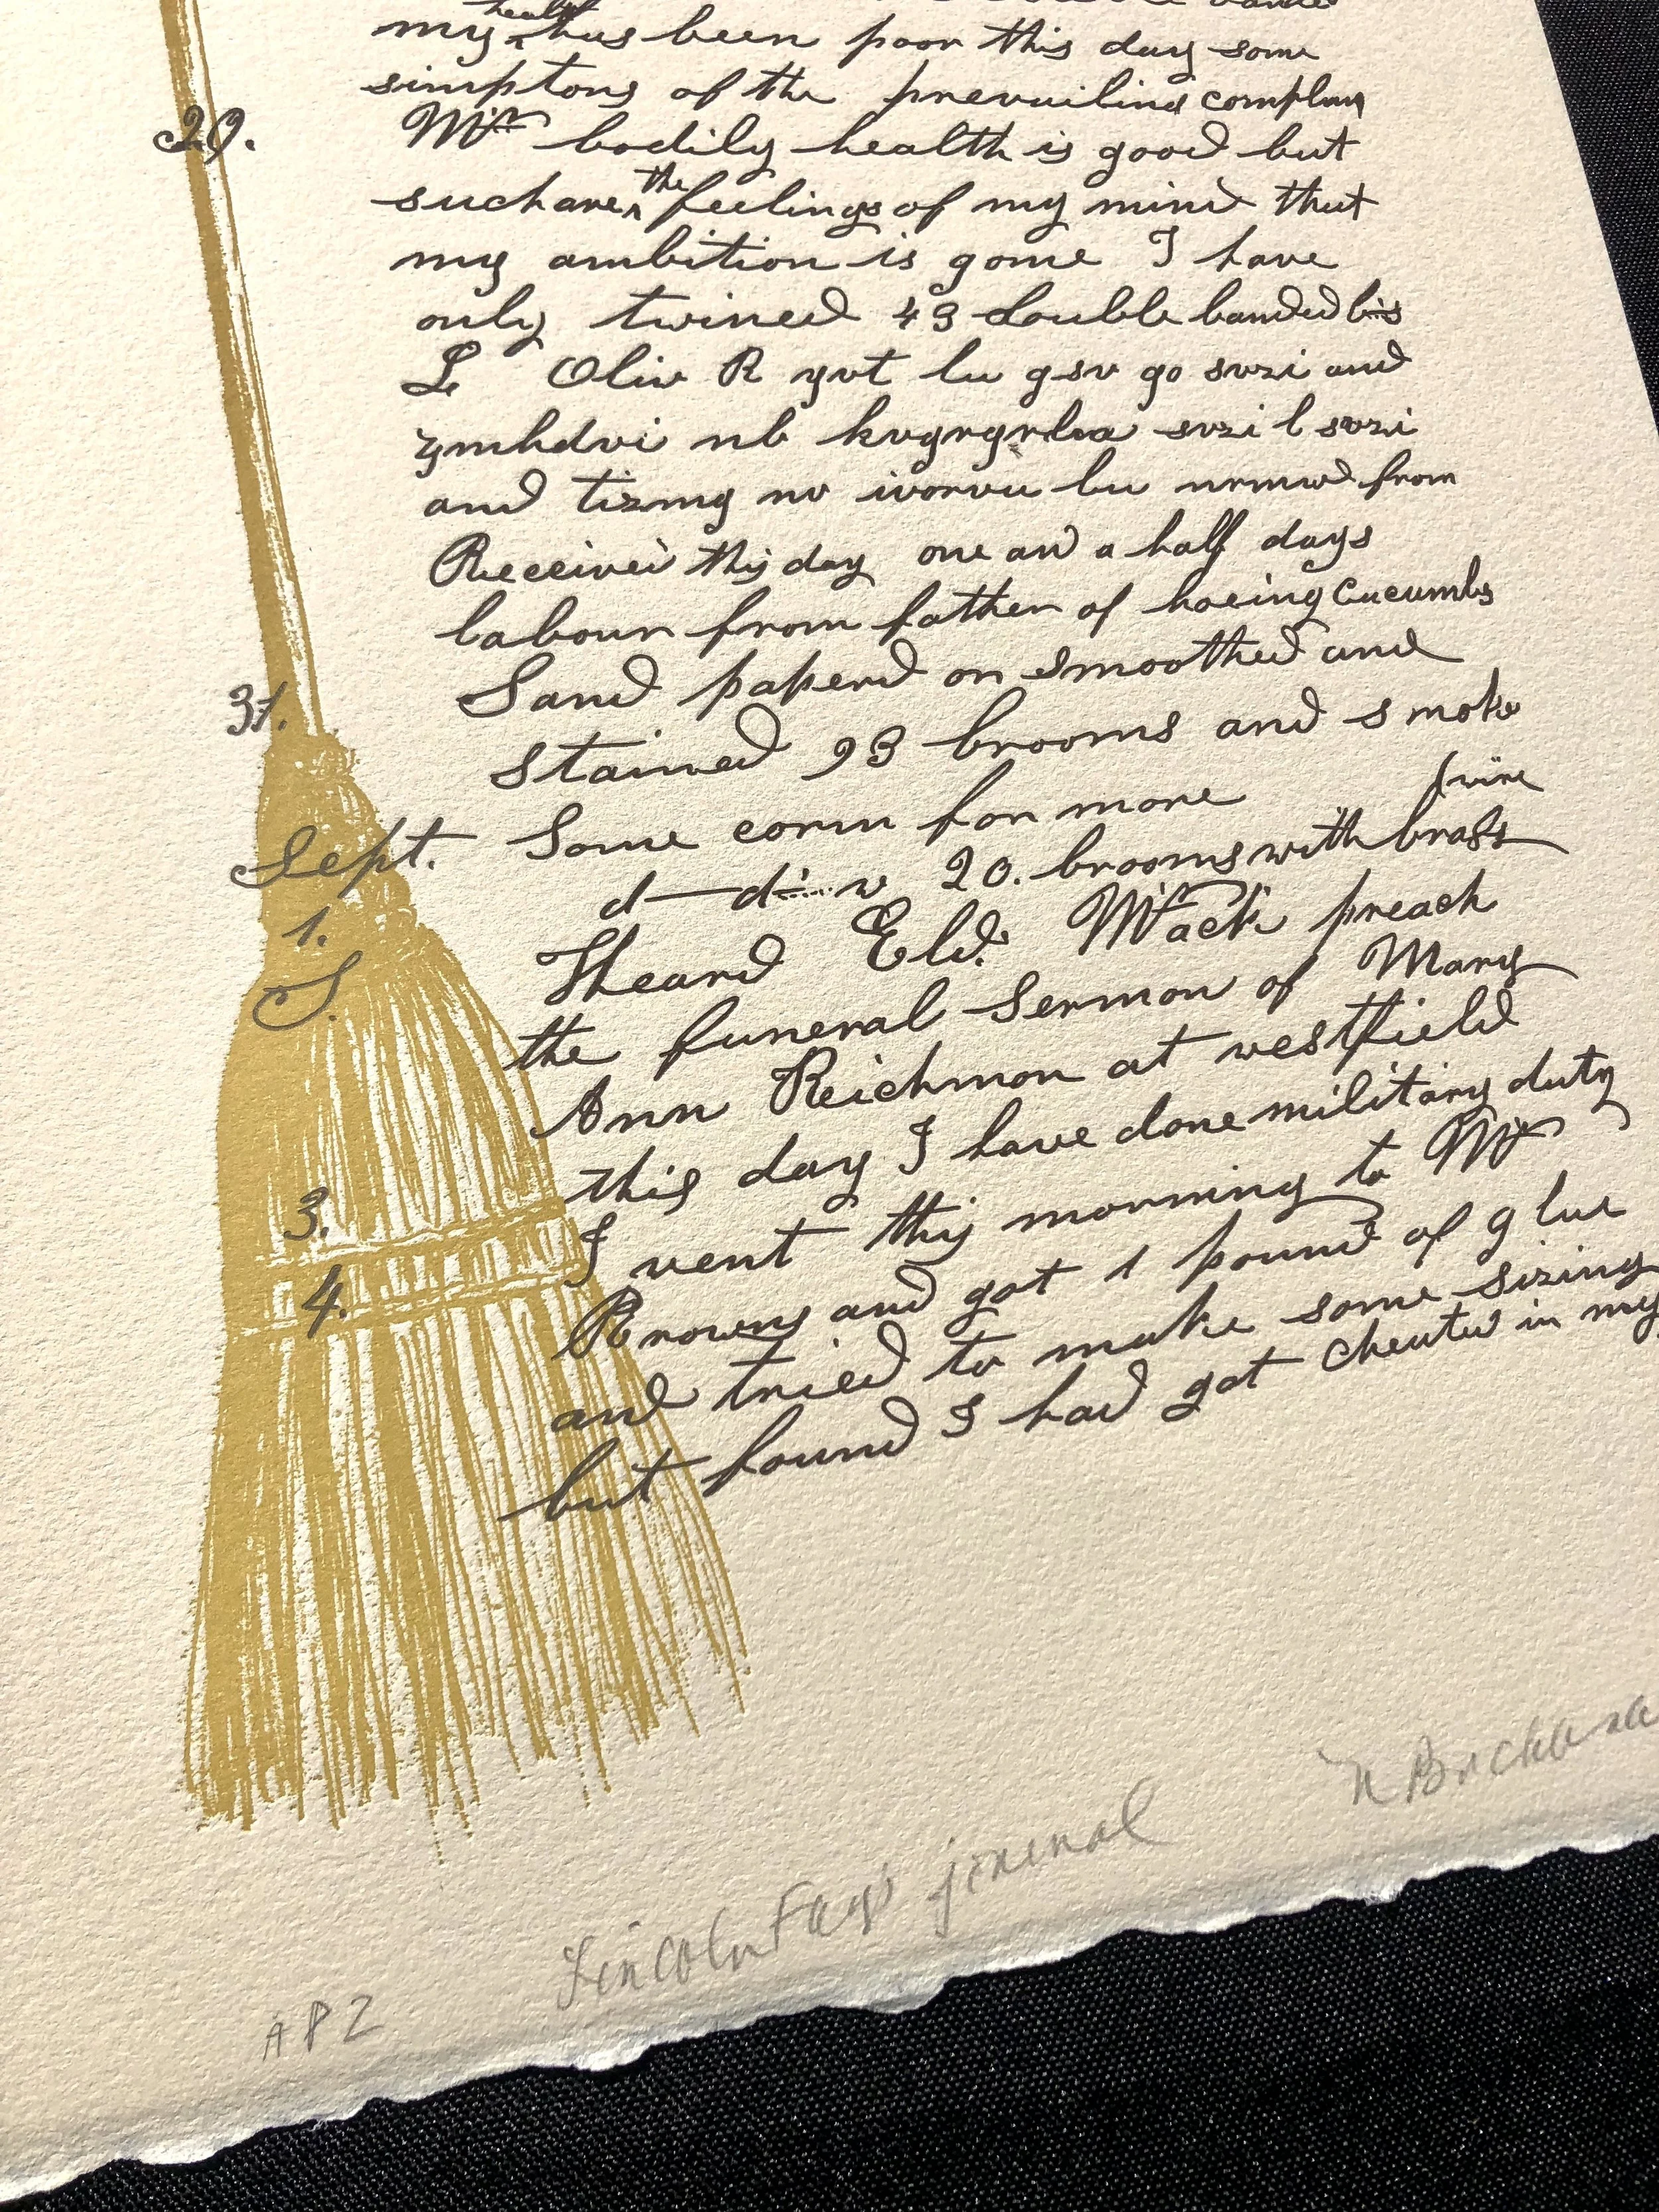 my health has been poor this day some
simptons of the prevailing
29. bodily health is good but
such are the feelings of my mind that
my ambition is gone I have
only twined 43 double banded
L Oliv R gvt lu gsv go svzi and
svzi l svzi
and from
Received this day one and a half days
labour from father of hoeing cucumbs
31. Sand paperd on smoothed and
stained 93 brooms and smoke
Sept. Some corm for more
1. 20. brooms with brass wire
S. Heard Eld. Mack preach
the funeral Sermon of Mary
Ann Reichmon at westfield
3. this day I have done military duty
4. I went this morning to Mr
Browns and got 1 pound of glue
and tried to make some sizing
but found I had got cheated in my
AP2 Lincoln Fay's journal